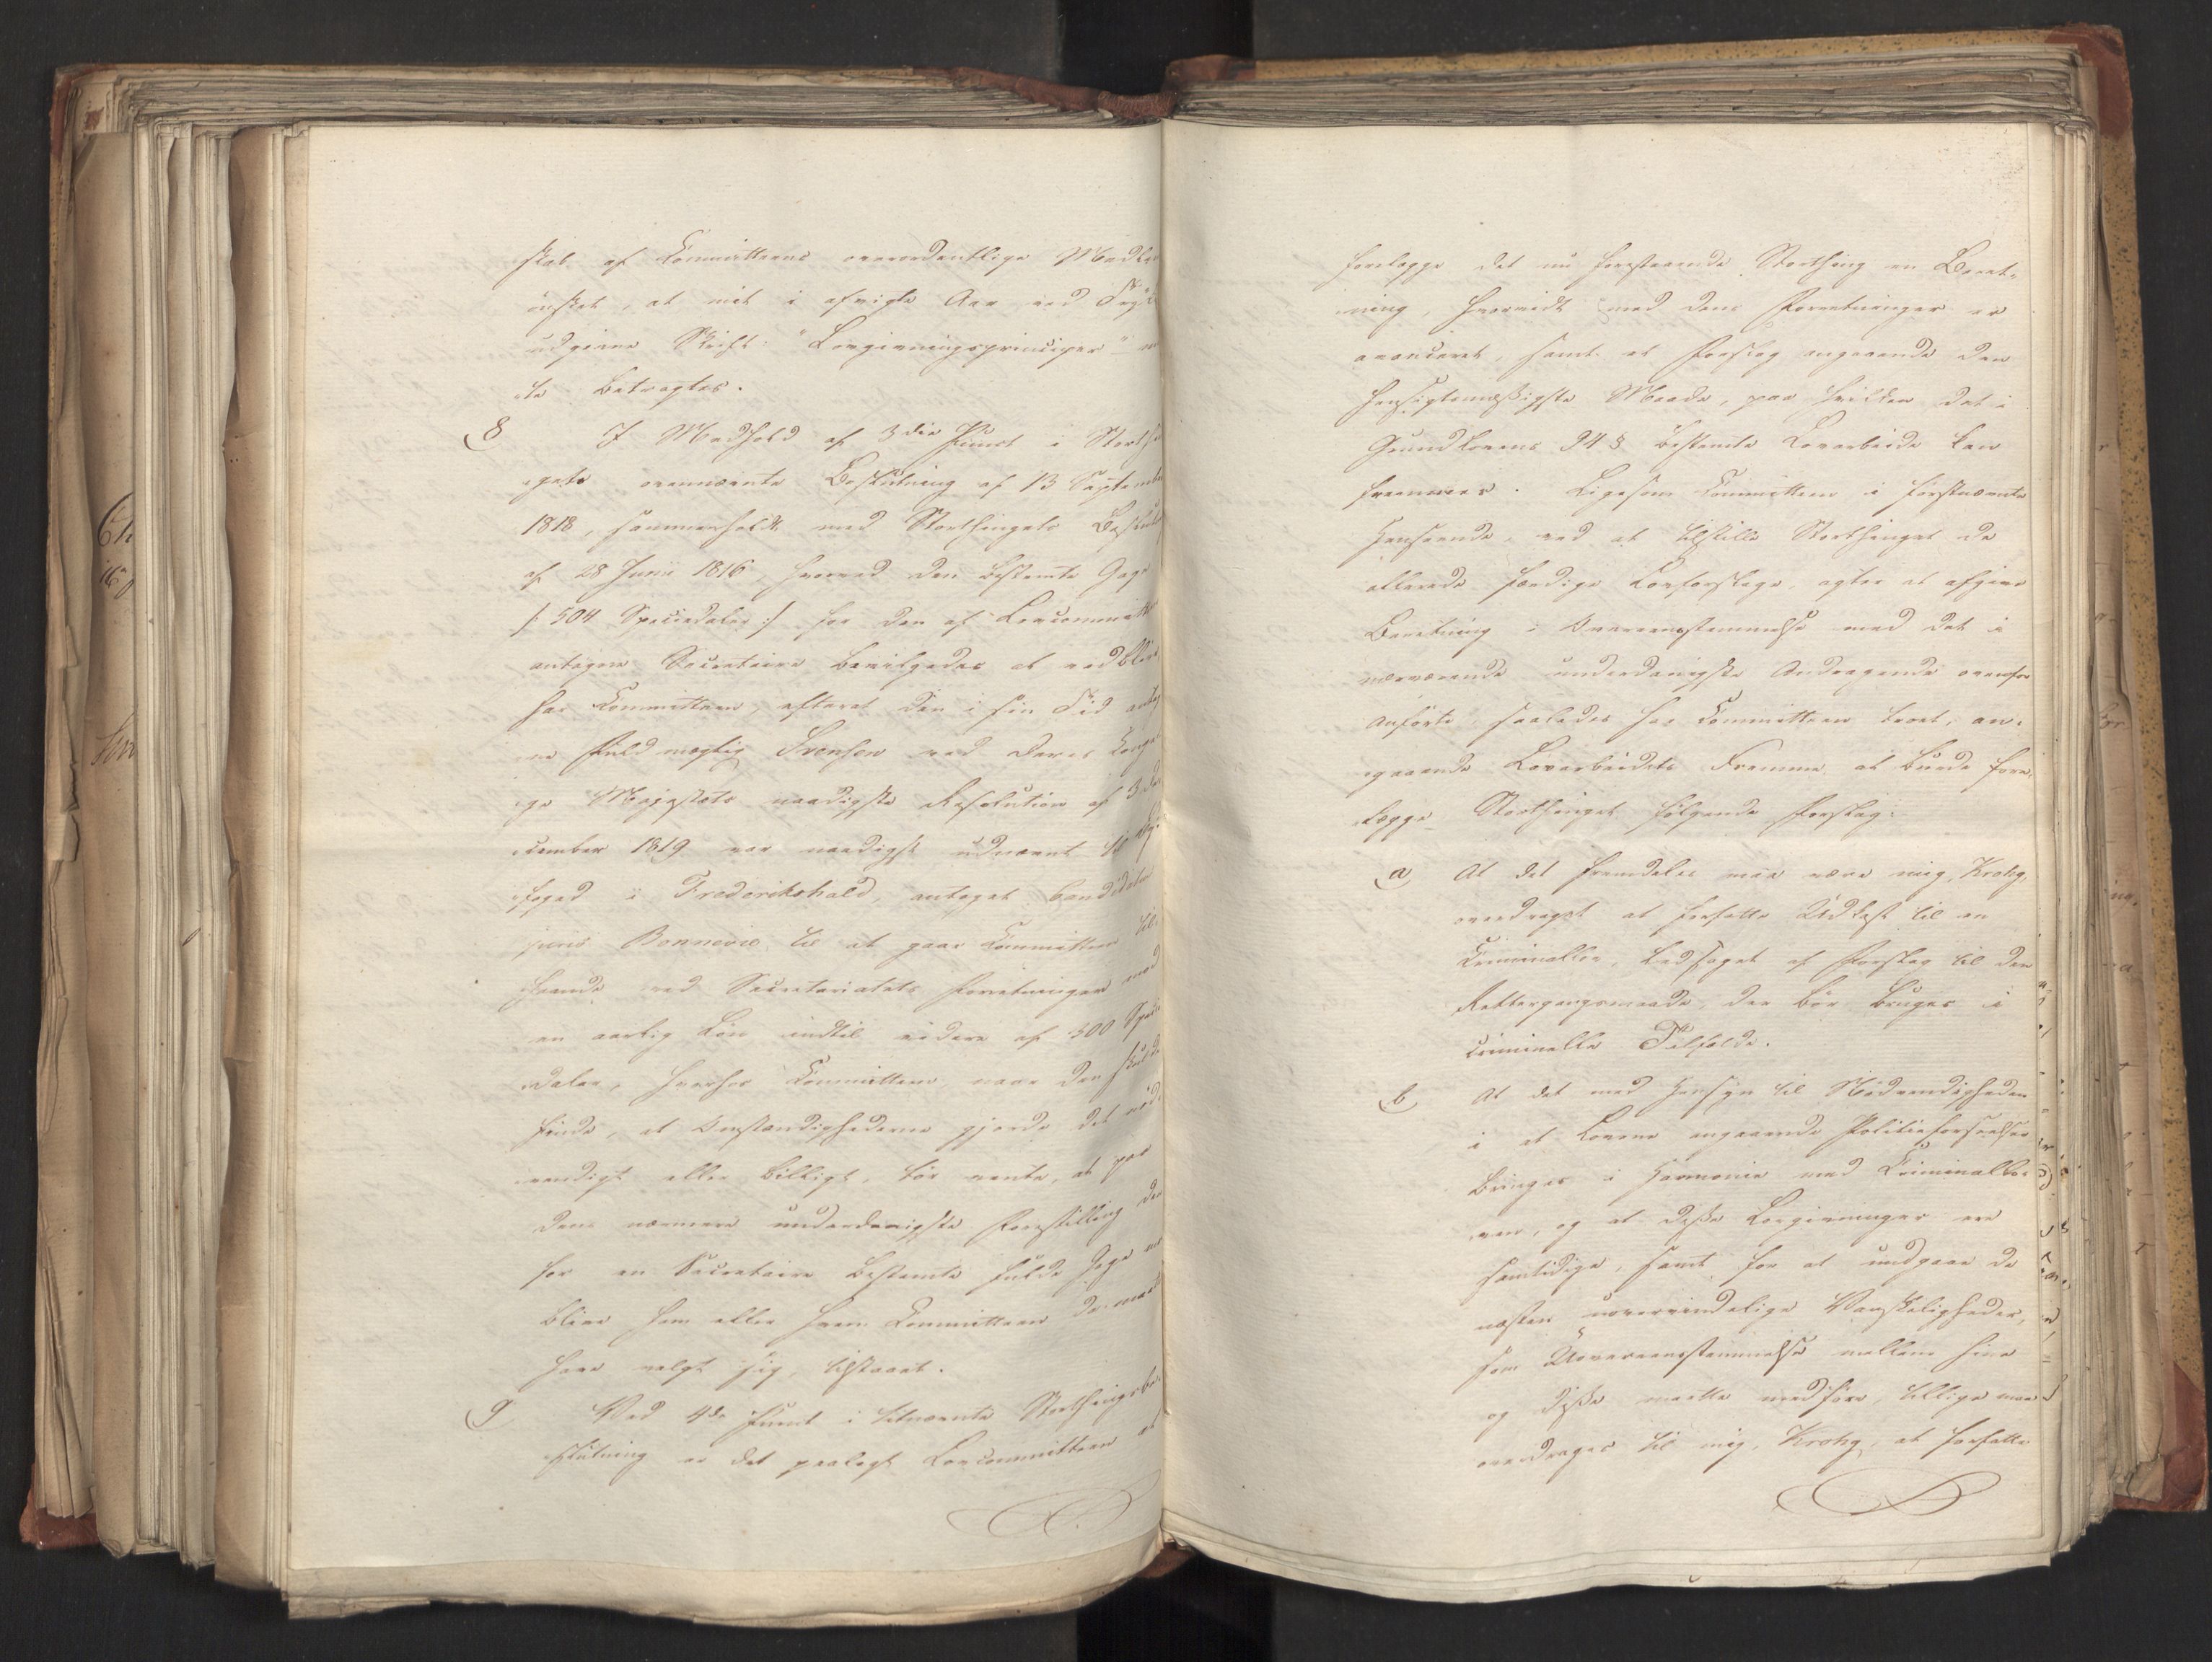 skab af Committeens overordentlige Medlem
ønsket, at mit i afvigte Aar ved Trykken
udgivne Skrift: "Lovgivningsprinciper"
te betragtes.
8 I Medhold af 3die Punct i Storthin-
gets ovennævnte Beslutning af 13 September
1818, sammenholdt med Storthingets Beslutn
af 28 Junii 1816, hvorved den bestemte Gage
/: 504 Speciedaler :/ for den af Lovcommitteen
antagne Secretaire bevilgedes at vedblive,
har Committeen, efterat den i sin Tid antag-
ne Fuldmægtig Svensen ved Deres Konge-
lige Majestæts naadigste Resolution af 3 De-
cember 1819 var naadigst udnævnt til By-
foged i Frederikshald, antaget Candidatus
juris Bonnevie til at gaae Committeen til
Haande ved Secretariatets Forretninger mod
en aarlig Løn indtil videre af 300 Specie-
daler, hvorhos Committeen, naar den skulde
finde, at Omstændighederne gjorde det nød-
vendigt eller billigt, tør vente, at paa
dens nærmere underdanigste Forestilling den
for en Secretaire bestemte fulde Gage
bliver ham eller hvem Committeen dertil maatte
have valgt sig, tilstaaet.
9 Ved 4de Punct i bemeldte Storthingsbe-
slutning er det paalagt Lovcommitteen at
forelægge det nu forestaaende Storthing en Beret-
ning, hvorvidt med dens Forretninger er
avanceret, samt et Forslag angaaende den
hensigtsmæssigste Maade, paa hvilken det i
Grundlovens 94 § bestemte Lovarbeide kan
fremmes. Ligesom Committeen i førstnævnte
Henseende, ved at tilstille Storthinget de
allerede færdige Lovforslage, agter at afgive
Beretning i Overeensstemmelse med det i
nærværende underdanigste Andragende ovenfor
anførte, saaledes har Committeen troet, an-
gaaende Lovarbeidets Fremme at burde fore-
lægge Storthinget følgende Forslag:
a At det fremdeles maa være mig, Krohg,
overdraget at forfatte Udkast til en
Criminallov, ledsaget af Forslag til den
Rettergangsmaade, der bør bruges i
criminelle Tilfælde.
b At det med Hensyn til Nødvendigheden
i at Lovene angaaende Politieforseelser
bringes i Harmonie med Criminallo-
ven, og at disse Lovgivninger ere
samtidige, samt for at undgaae de
næsten uovervindelige Vanskeligheder,
som Uovereensstemmelse mellem hine
og disse maatte medføre, tillige maa
overdrages til mig, Krohg, at forfatte